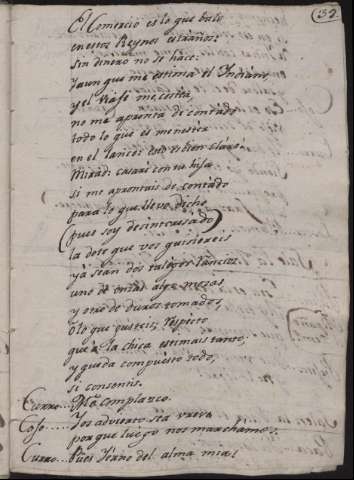 39
El Comercio es lo que busco
en estos Reynos estraños:
sin dinero no se hace:
y aunque me estima el Indiano,
y el Viage me costea,
no me apronta de contado
todo lo que es menester
en el lance: esto es bien claro.
Mirad: casaré con tu hija
si me aprontais de contado
para lo que llevo dicho
(pues soy desinteresado)
la dote que vos quisiereis
ya sean dos talegos
uno de
y otro de duros
o lo que gusteis; respecto
que a la chica estimais tanto;
y queda compuesto todo,
si consentis.
Curro.... Me complazco.
Coso.... Yos advierto sea breve
porque luego nos marchamos.
Curro.... Pues Yerno del alma mia!